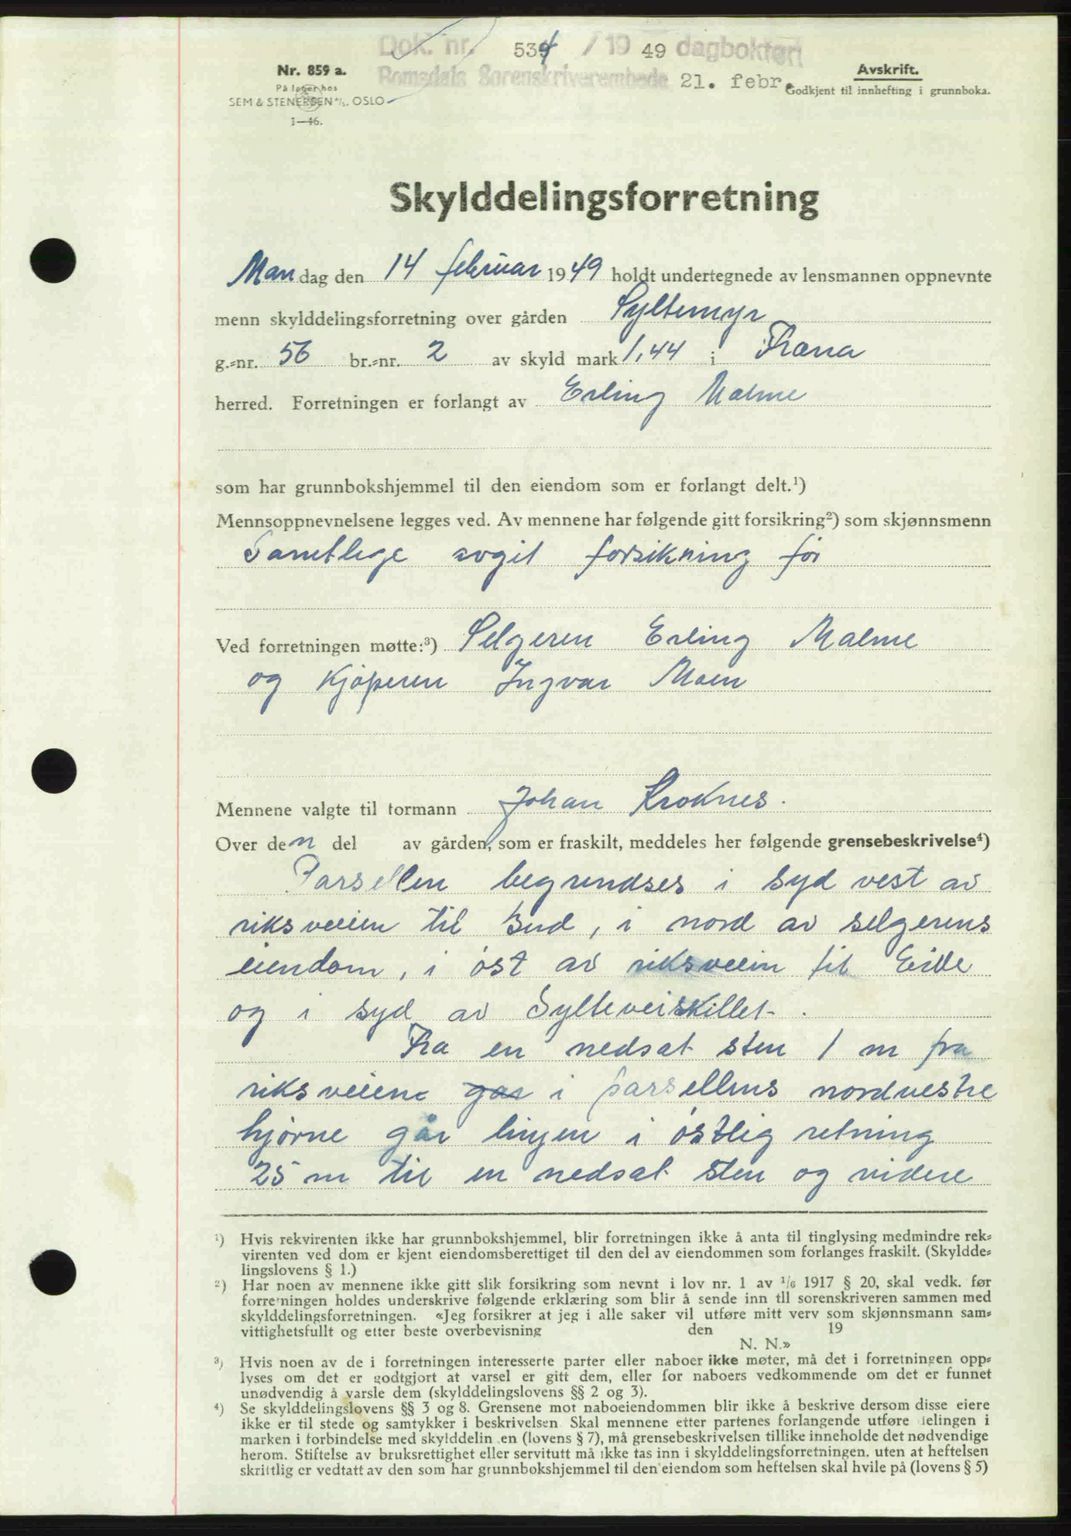 Dok. nr. 534 / 19 49 dagboktført
Romsdals Sorenskriverembede 21. febr.
Nr. 859 a.
På lager hos
SEM & STENERSEN A/S, OSLO
1—46.
Avskrift.
Godkjent til innhefting i grunnboka.
Skylddelingsforretning
Mandag den 14 februar 1949 holdt undertegnede av lensmannen oppnevnte
menn skylddelingsforretning over gården Syltemyr
g.-nr. 56 br.-nr. 2 av skyld mark 1,44 i Fræna
herred. Forretningen er forlangt av Erling Malme
som har grunnbokshjemmel til den eiendom som er forlangt delt.¹)
Mennsoppnevnelsene legges ved. Av mennene har følgende gitt forsikring²) som skjønnsmenn
Samtlige avgit forsikring før
Ved forretningen møtte:³) Selgeren Erling Malme
og kjøperen Ingvar Moen
Mennene valgte til formann Johan Kroknes.
Over den del av gården, som er fraskilt, meddeles her følgende grensebeskrivelse⁴)
Parsellen begrendses i syd vest av
riksveien til Bud, i nord av selgerens
eiendom, i øst av riksveien til Eide
og i syd av Sylteveiskillet.
Fra en nedsat sten 1 m fra
riksveiene gaa i parsellens nordvestre
hjørne går linjen i østlig retning
25 m til en nedsat sten og videre
¹) Hvis rekvirenten ikke har grunnbokshjemmel, blir forretningen ikke å anta til tinglysing medmindre rek-
virenten ved dom er kjent eiendomsberettiget til den del av eiendommen som forlanges fraskilt. (Skyldde-
lingslovens § 1.)
²) Har noen av mennene ikke gitt slik forsikring som nevnt i lov nr. 1 av 1/6 1917 § 20, skal vedk. før
forretningen holdes underskrive følgende erklæring som blir å sende inn til sorenskriveren sammen med
skylddelingsforretningen. «Jeg forsikrer at jeg i alle saker vil utføre mitt verv som skjønnsmann sam-
vittighetsfullt og etter beste overbevisning den 19
N. N.»
³) Hvis noen av de i forretningen interesserte parter eller naboer ikke møter, må det i forretningen opp-
lyses om det er godtgjort at varsel er gitt dem, eller for naboers vedkommende om det er funnet
unødvendig å varsle dem (skylddelingslovens §§ 2 og 3).
⁴) Se skylddelingslovens §§ 3 og 8. Grensene mot naboeiendommen blir ikke å beskrive dersom disse eiere
ikke er til stede og samtykker i beskrivelsen. Skal mennene etter partenes forlangende utføre delingen i
marken i forbindelse med skylddelin en (lovens § 7), må grensebeskrivelsen tillike inneholde det nødvendige
herom. Stiftelse av bruksrettighet eller servitutt må ikke tas inn i skylddelingsforretningen, uten at heftelsen
skriftlig er vedtatt av den som har grunnbokshjemmel til den eiendom som heftelsen skal hvile på (lovens § 5)